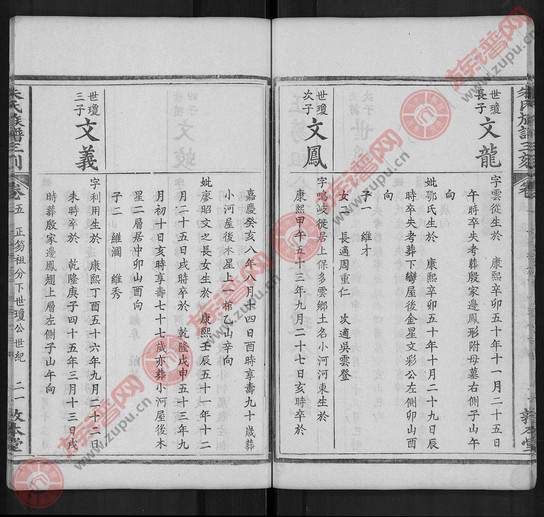 世瓊
長子
文龍
字雲從生於 康熙辛卯五十年十一月二十五日
午時卒失考葬殷家邊鳳形附母墓右側子山午
向
妣鄂氏生於 康熙辛卯五十年十月二十九日辰
時卒失考葬下灣屋後金星文彩公左側卯山酉
向
子一 維才
女一 長適周重仁 次適吳雲登
世瓊
次子
文鳳
字鳴岐從居上保多雲鄉土名小河河東生於
康熙甲午五十三年九月二十七日亥時卒於
嘉慶癸亥八年八月十四日酉時享壽九十歲葬
小河屋後木星上八梯乙山辛向
妣廖昭文之長女生於 康熙壬辰五十一年十二
月二十五日戌時卒於 乾隆戊申五十三年九
月初十日亥時享壽七十七歲亦葬小河屋後木
星二層居中卯山酉向
子二 維瀛 維秀
世瓊
三子
文義
字利用生於 康熙丁酉五十六年九月二十三日
未時卒於 乾隆庚子四十五年三月十三日戌
時葬殷家邊鳳翅上層左側子山午向
朱氏族譜三刻
卷五
正笏祖分下世瓊公世紀
二一
敦本堂
族谱网
www.zupu.cn